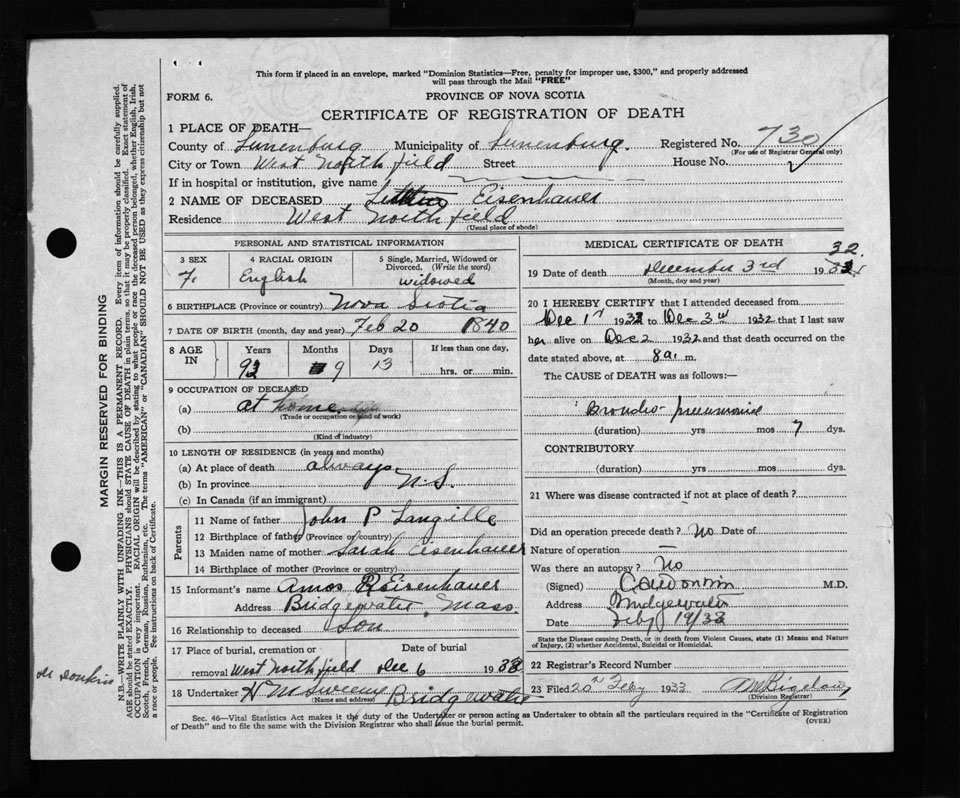 This form if placed in an envelope, marked "Dominion Statistics—Free, penalty for improper use, $300," and properly addressed
will pass through the Mail "FREE"
FORM 6.
PROVINCE OF NOVA SCOTIA
CERTIFICATE OF REGISTRATION OF DEATH
1 PLACE OF DEATH—
County of Lunenburg Municipality of Lunenburg. Registered No. 730
(For use of Registrar General only)
City or Town West North field Street House No.
If in hospital or institution, give name
2 NAME OF DECEASED Eisenhauer
Residence West North field
(Usual place of abode)
PERSONAL AND STATISTICAL INFORMATION
3 SEX 4 RACIAL ORIGIN 5 Single, Married, Widowed or Divorced. (Write the word)
F. English widowed
6 BIRTHPLACE (Province or country) Nova Scotia
7 DATE OF BIRTH (month, day and year) Feb 20 1840
8 AGE IN Years Months Days If less than one day,
92 9 13 hrs. or min.
9 OCCUPATION OF DECEASED
(a) at home
(Trade or occupation or kind of work)
(b)
(Kind of industry)
10 LENGTH OF RESIDENCE (in years and months)
(a) At place of death always
(b) In province N.S.
(c) In Canada (if an immigrant)
Parents
11 Name of father John P Langille
12 Birthplace of father (Province or country)
13 Maiden name of mother Sarah Eisenhauer
14 Birthplace of mother (Province or country)
15 Informant's name Amos R Eisenhauer
Address Bridgewater, Mass.
16 Relationship to deceased Son
17 Place of burial, cremation or removal Date of burial
West North field Dec 6 1932
18 Undertaker H M Sweeny Bridgewater
(Name and address)
MEDICAL CERTIFICATE OF DEATH
32.
19 Date of death December 3rd 193
(Month, day and year)
20 I HEREBY CERTIFY that I attended deceased from
Dec 1st 1932 to Dec 3rd 1932 that I last saw
her alive on Dec 2 1932 and that death occurred on the
date stated above, at 8 a. m.
The CAUSE of DEATH was as follows:—
Broncho-pneumonia
(duration) yrs mos 7 dys.
CONTRIBUTORY
(duration) yrs mos dys.
21 Where was disease contracted if not at place of death?
Did an operation precede death? No Date of
Nature of operation —
Was there an autopsy? No
(Signed) M.D.
Address Bridgewater
Date Feby 19/33
State the Disease causing Death, or in death from Violent Causes, state (1) Means and Nature
of Injury, (2) whether Accidental, Suicidal or Homicidal.
22 Registrar's Record Number
23 Filed 20th Feby 1933 Bigelow
(Division Registrar)
Sec. 46—Vital Statistics Act makes it the duty of the Undertaker or person acting as Undertaker to obtain all the particulars required in the "Certificate of Registration
of Death" and to file the same with the Division Registrar who shall issue the burial permit.
(OVER)
MARGIN RESERVED FOR BINDING
N.B.—WRITE PLAINLY WITH UNFADING INK—THIS IS A PERMANENT RECORD. Every item of information should be carefully supplied.
AGE should be stated EXACTLY. PHYSICIANS should STATE CAUSE OF DEATH in plain terms, so that it may be properly classified. Exact statement of
OCCUPATION is very important. RACIAL ORIGIN will be described by stating to what people or race the deceased person belonged, whether English, Irish,
Scotch, French, German, Russian, Ruthenian, etc. The terms "AMERICAN" or "CANADIAN" SHOULD NOT BE USED as they express citizenship but not
a race or people. See instructions on back of Certificate.